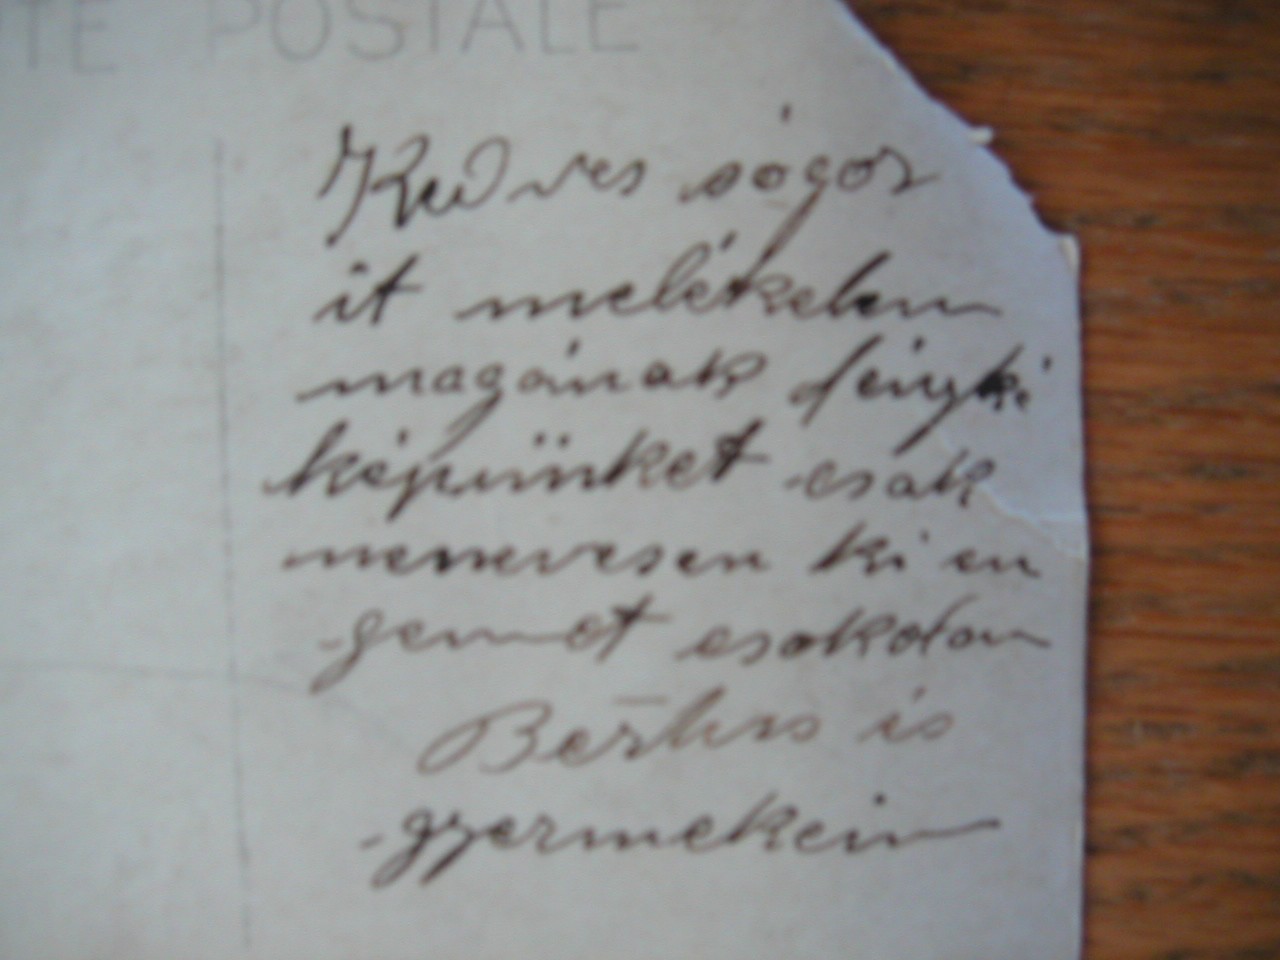 TE POSTALE
Kedves sógor
it melékelem
magának fényki
képünket csak
nemevesen ki en
gemet csokolom
is
gyermekeim